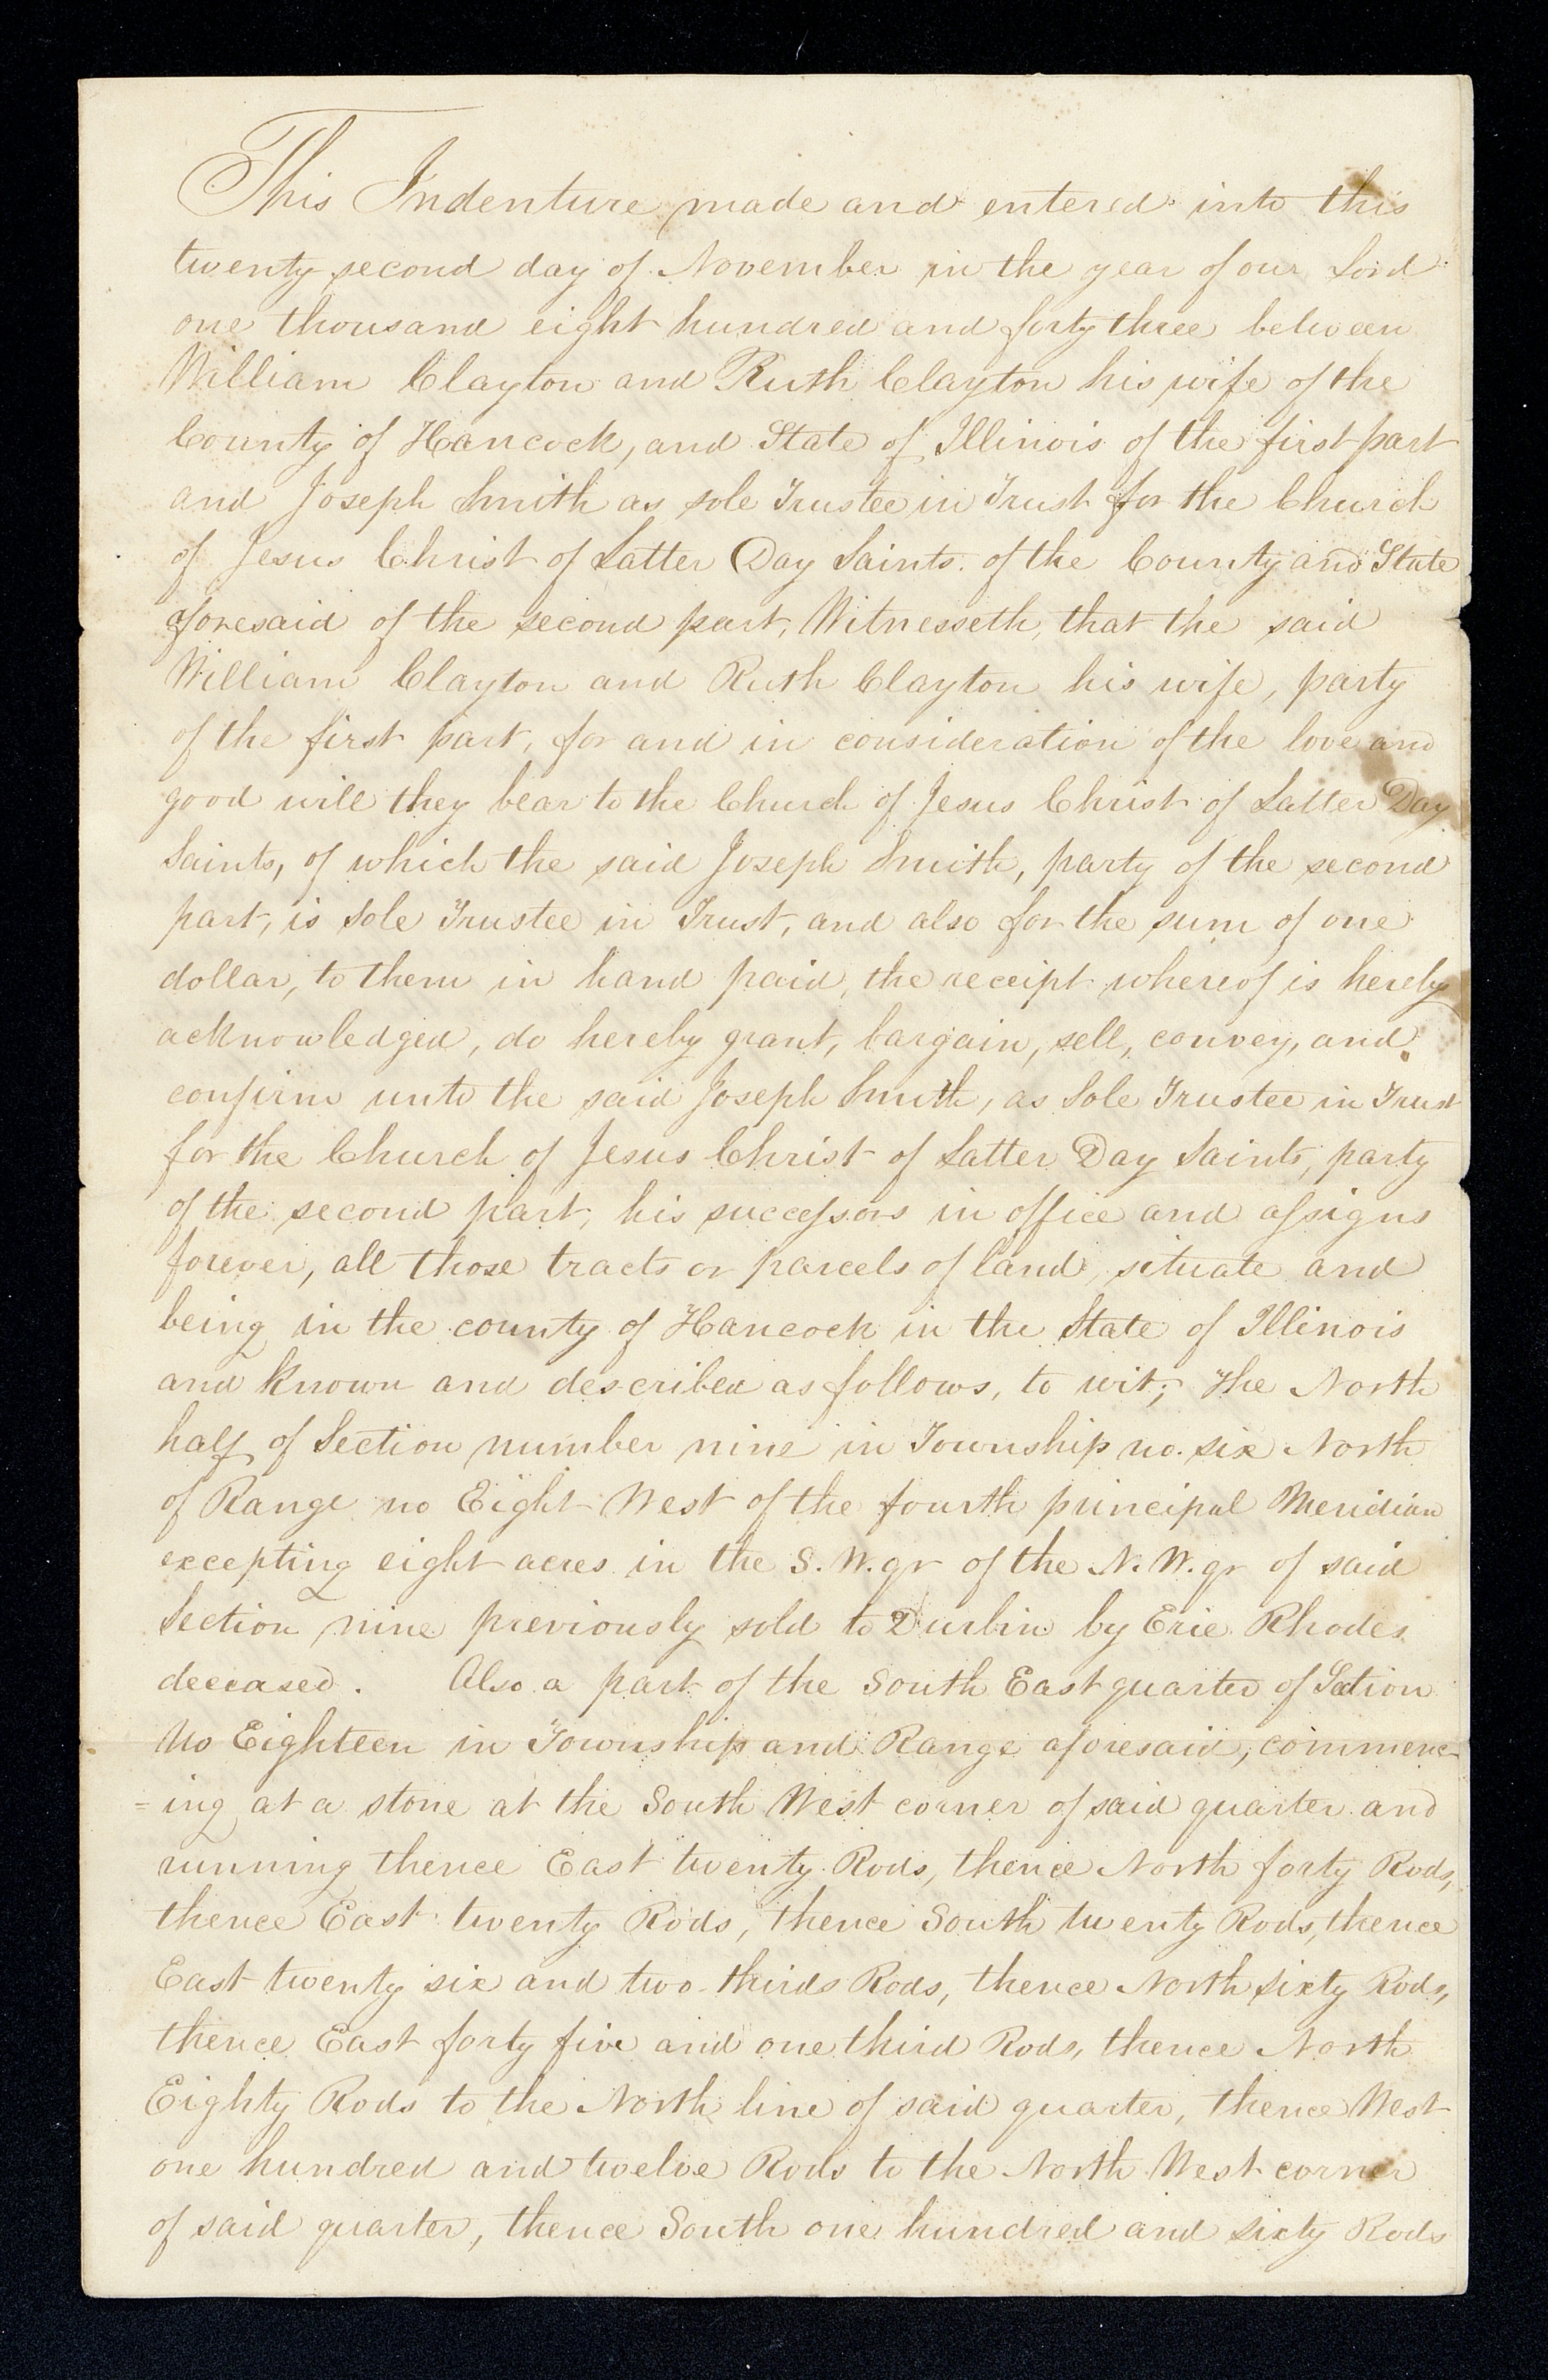 This Indenture made and entered into this
twenty second day of November in the year of our Lord
one thousand eight hundred and forty three between
William Clayton and Ruth Clayton his wife of the
County of Hancock, and State of Illinois of the first part
and Joseph Smith as sole Trustee in Trust for the Church
of Jesus Christ of Latter Day Saints. of the County and State
aforesaid of the second part, Witnesseth, that the said
William Clayton and Ruth Clayton his wife, party
of the first part, for and in consideration of the love and
good will they bear to the Church of Jesus Christ of Latter Day
Saints, of which the said Joseph Smith, party of the second
part, is Sole Trustee in Trust, and also for the sum of one
dollar, to them in hand paid, the receipt whereof is hereby
acknowledged, do hereby grant, bargain, sell, convey, and
confirm unto the said Joseph Smith, as Sole Trustee in Trust
for the Church of Jesus Christ of Latter Day Saints, party
of the second part, his successors in office and assigns
forever, all those tracts or parcels of land, situate and
being in the county of Hancock in the State of Illinois
and known and described as follows, to wit; The North
half of Section number nine in Township no. six North
of Range no Eight West of the fourth principal Meridian
excepting eight acres in the S. W. qr of the N. W. qr of said
Section nine previously sold to Durbin by Erie Rhodes
deceased. Also a part of the South East quarter of Section
No Eighteen in Township and Range aforesaid, commenc-
=ing at a stone at the South West corner of said quarter and
running thence East twenty Rods, thence North forty Rods,
thence East twenty Rods, thence South twenty Rods, thence
East twenty six and two thirds Rods, thence North sixty Rods,
thence East forty five and one third Rods, thence North
Eighty Rods to the North line of said quarter, thence West
one hundred and twelve Rods to the North West corner
of said quarter, thence South one hundred and sixty Rods